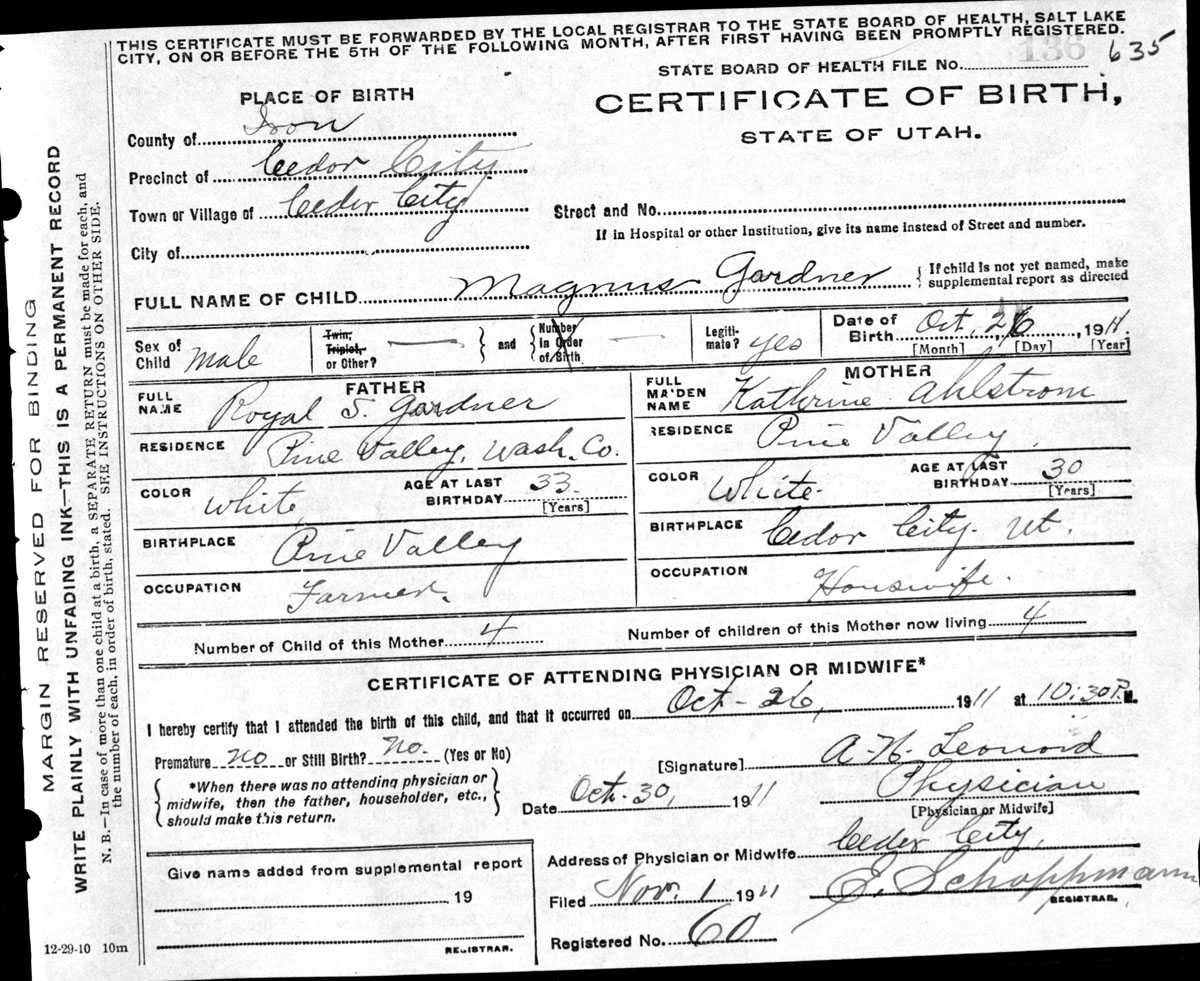 THIS CERTIFICATE MUST BE FORWARDED BY THE LOCAL REGISTRAR TO THE STATE BOARD OF HEALTH, SALT LAKE
CITY, ON OR BEFORE THE 5TH OF THE FOLLOWING MONTH, AFTER FIRST HAVING BEEN PROMPTLY REGISTERED.
136 635
STATE BOARD OF HEALTH FILE No.
PLACE OF BIRTH
CERTIFICATE OF BIRTH,
STATE OF UTAH.
County of Iron
Precinct of Cedor City
Town or Village of Ceder City
Street and No.
If in Hospital or other Institution, give its name instead of Street and number.
City of
FULL NAME OF CHILD Magnus Gardner { If child is not yet named, make
supplemental report as directed
Sex of Child Male
Twin, Triplet, or Other? — } and { Number in Order of Birth —
Legiti-mate? yes
Date of Birth Oct. 26, 1911.
[Month] [Day] [Year]
FATHER
FULL NAME Royal S. Gardner
RESIDENCE Pine Valley, Wash. Co.
COLOR White
AGE AT LAST BIRTHDAY 33
[Years]
BIRTHPLACE Pine Valley
OCCUPATION Farmer.
MOTHER
FULL MAIDEN NAME Kathrine Ahlstrom
RESIDENCE Pine Valley.
COLOR White.
AGE AT LAST BIRTHDAY 30
[Years]
BIRTHPLACE Cedor City. Ut.
OCCUPATION Houswife.
Number of Child of this Mother 4
Number of children of this Mother now living 4
CERTIFICATE OF ATTENDING PHYSICIAN OR MIDWIFE*
I hereby certify that I attended the birth of this child, and that it occurred on Oct-26, 1911 at 10:30 P. M.
Premature No or Still Birth? No. (Yes or No)
[Signature] A. N. Leonord
{ *When there was no attending physician or
midwife, then the father, householder, etc.,
should make this return. }
Date Oct-30, 1911
Physician
[Physician or Midwife]
Address of Physician or Midwife Ceder City,
Give name added from supplemental report
19
REGISTRAR.
Filed Nov. 1 1911
E. Schoppmann
REGISTRAR.
Registered No. 60
12-29-10 10m
MARGIN RESERVED FOR BINDING
WRITE PLAINLY WITH UNFADING INK—THIS IS A PERMANENT RECORD
N. B.—In case of more than one child at a birth, a SEPARATE RETURN must be made for each, and
the number of each, in order of birth, stated. SEE INSTRUCTIONS ON OTHER SIDE.